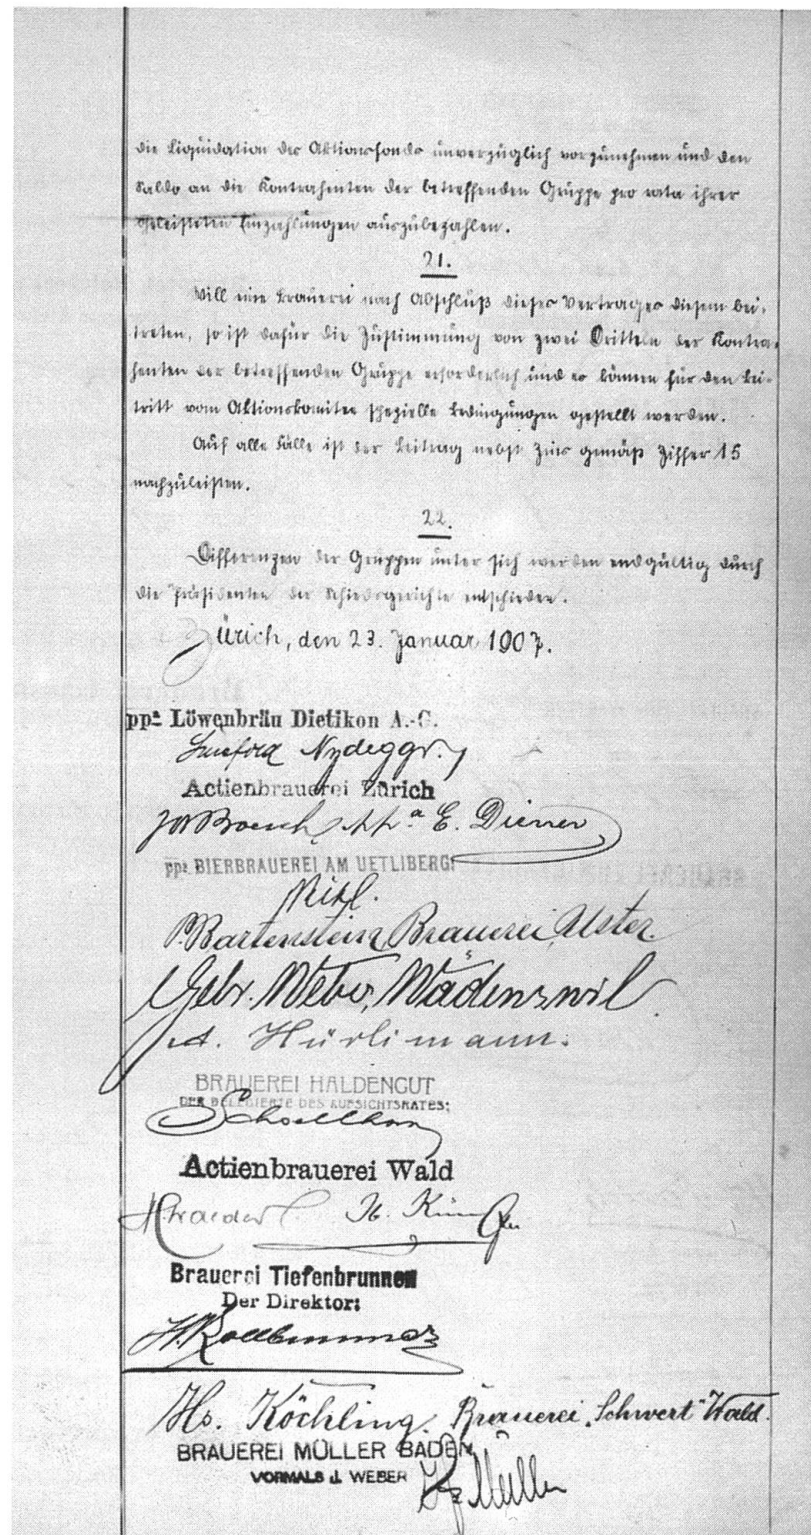 die Liquidation des Aktionsfonds unverzüglich vorzunehmen und den
Saldo an die Kontrahenten der betreffenden Gruppe pro rata ihrer
geleisteten Einzahlungen auszubezahlen.
21.
Will eine Brauerei nach Abschluß dieses Vertrages diesem bei-
treten, so ist dafür die Zustimmung von zwei Dritteln der Kontra-
henten der betreffenden Gruppe erforderlich und es können für den Bei-
tritt vom Aktionskomitee spezielle Bedingungen gestellt werden.
Auf alle Fälle ist der Beitrag nebst Zins gemäß Ziffer 15
nachzuleisten.
22.
Differenzen der Gruppen unter sich werden endgültig durch
die Präsidenten der Schiedsgerichte entschieden.
Zürich, den 23. Januar 1907.
ppa Löwenbräu Dietikon A.-G.
Nydegger
Actienbrauerei Zürich
ppa E. Diener
ppa BIERBRAUEREI AM UETLIBERG:
P. Bartenstein, Brauerei, Uster
Gebr. Weber, Wädenswil.
A. Hürlimann.
BRAUEREI HALDENGUT
DER DELEGIERTE DES AUFSICHTSRATES:
Schoellhorn
Actienbrauerei Wald
Brauerei Tiefenbrunnen
Der Direktor:
Hs. Köchling, Brauerei "Schwert" Wald.
BRAUEREI MÜLLER BADEN
VORMALS J. WEBER
Müller